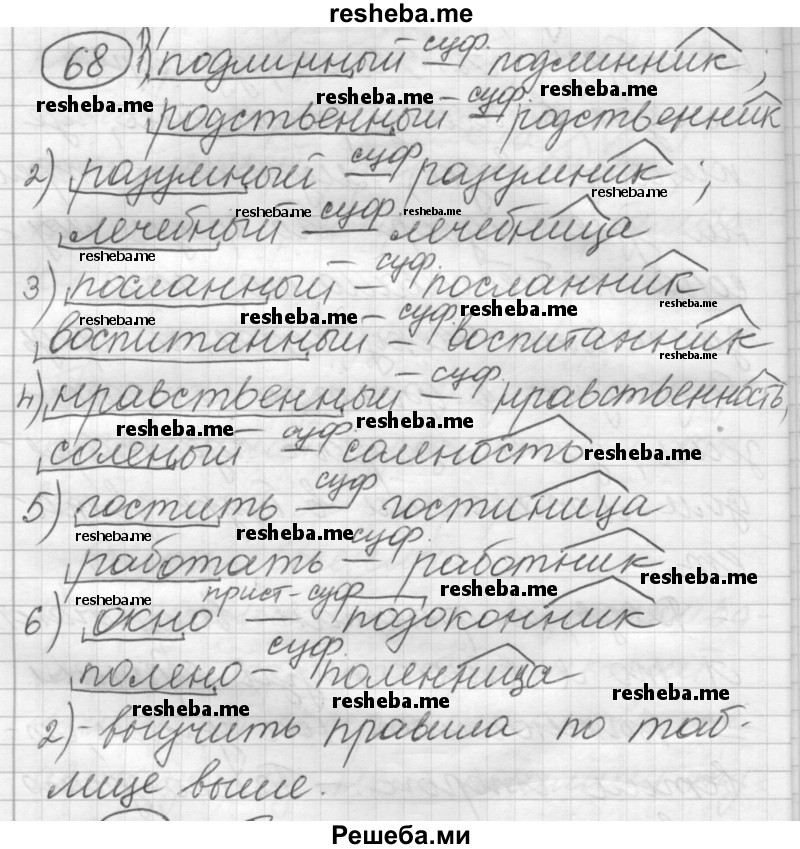 resheba.me
68 1) подлинный — суф. подлинник;
resheba.me resheba.me resheba.me
родственный — суф. родственник
2) разумный — суф. разумник;
resheba.me
resheba.me resheba.me
лечебный — суф. лечебница
resheba.me
3) посланный — суф. посланник
resheba.me resheba.me resheba.me resheba.me
воспитанный — суф. воспитанник
resheba.me
4) нравственный — суф. нравственность,
resheba.me resheba.me
соленый — суф. соленость
resheba.me
5) гостить — суф. гостиница
resheba.me resheba.me
работать — суф. работник
resheba.me resheba.me resheba.me
6) окно — прист-суф. подоконник
полено — суф. поленница
resheba.me resheba.me resheba.me
2) - выучить правила по таб-
лице выше.
Решеба.ми